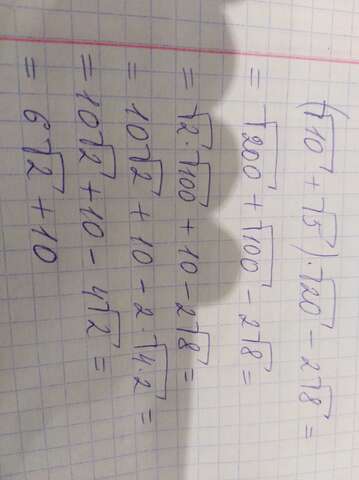 (√10 + √5) · √20 − 2√8 =
= √200 + √100 − 2√8 =
= √2 · √100 + 10 − 2√8 =
= 10√2 + 10 − 2 · √4·2 =
= 10√2 + 10 − 4√2 =
= 6√2 + 10